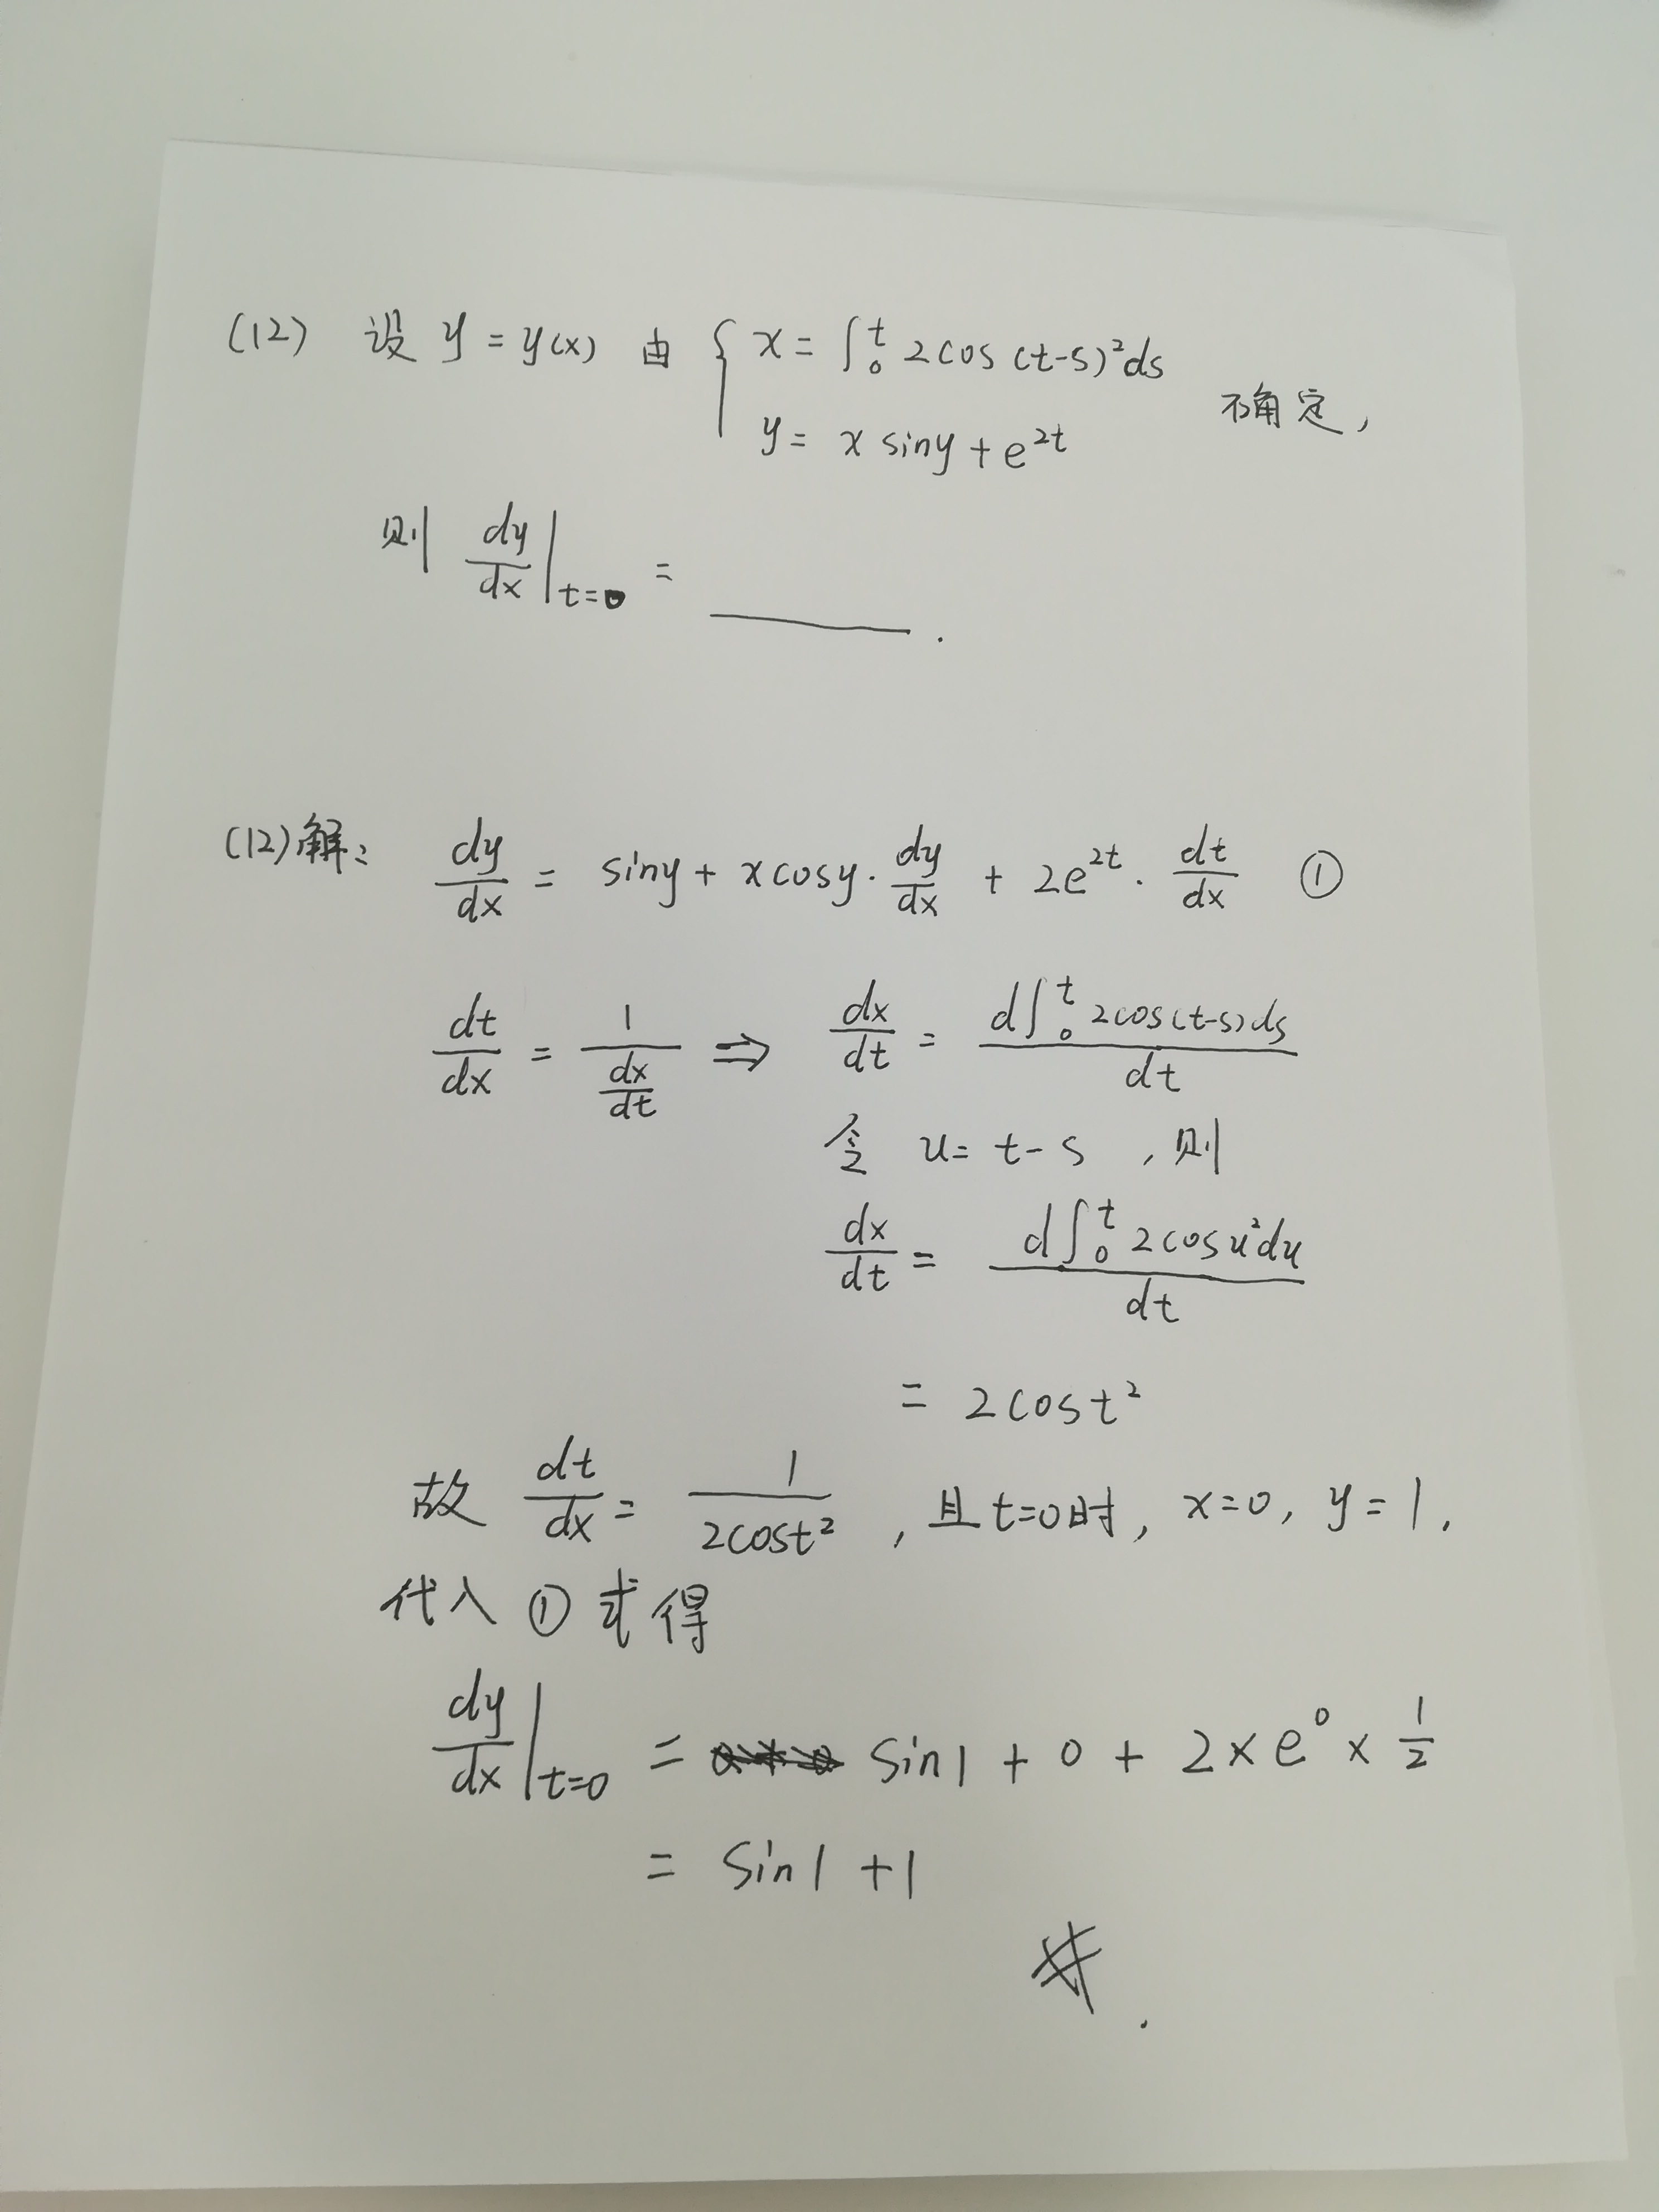 (12) 设 y = y(x) 由 { x = ∫₀ᵗ 2cos(t-s)²ds
y = x siny + e^{2t} 确定,
则 dy/dx |_{t=0} = ______ .
(12)解: dy/dx = siny + xcosy · dy/dx + 2e^{2t} · dt/dx ①
dt/dx = 1/(dx/dt) ⇒ dx/dt = d∫₀ᵗ 2cos(t-s)ds / dt
令 u = t-s , 则
dx/dt = d∫₀ᵗ 2cosu²du / dt
= 2cost²
故 dt/dx = 1/(2cost²) , 且 t=0时, x=0, y=1.
代入 ① 式得
dy/dx |_{t=0} = sin1 + 0 + 2×e⁰×1/2
= sin1 +1
#.